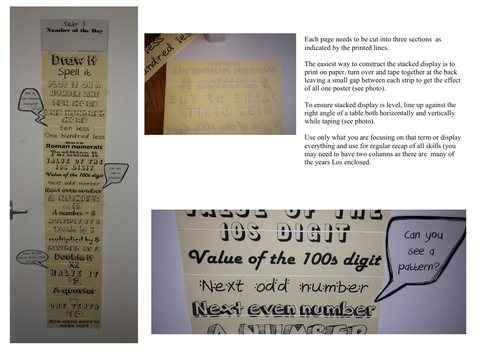 Year 3
Number of the Day
Draw it
Spell it
PLOT IT ON A
NUMBER LINE
TEN MORE
ONE HUNDRED
MORE
ten less
One hundred less
Roman numerals
Partition it
VALUE OF THE
10S DIGIT
Value of the 100s digit
Next odd number
Next even number
A NUMBER
A number > it
MULTIPLY BY
Divide by
multiplied by 8
DIVIDED BY
Double it
X2
HALVE IT
÷2
A quarter
÷4
ONE TENTH
÷10
Can you see a pattern?
Roman numerals
Each page needs to be cut into three sections as
indicated by the printed lines.
The easiest way to construct the stacked display is to
print on paper, turn over and tape together at the back
leaving a small gap between each strip to get the effect
of all one poster (see photo).
To ensure stacked display is level, line up against the
right angle of a table both horizontally and vertically
while taping (see photo).
Use only what you are focusing on that term or display
everything and use for regular recap of all skills (you
may need to have two columns as there are many of
the years Los enclosed.
VALUE OF THE
10S DIGIT
Value of the 100s digit
Next odd number
Next even number
A NUMBER
Can you
see a
pattern?